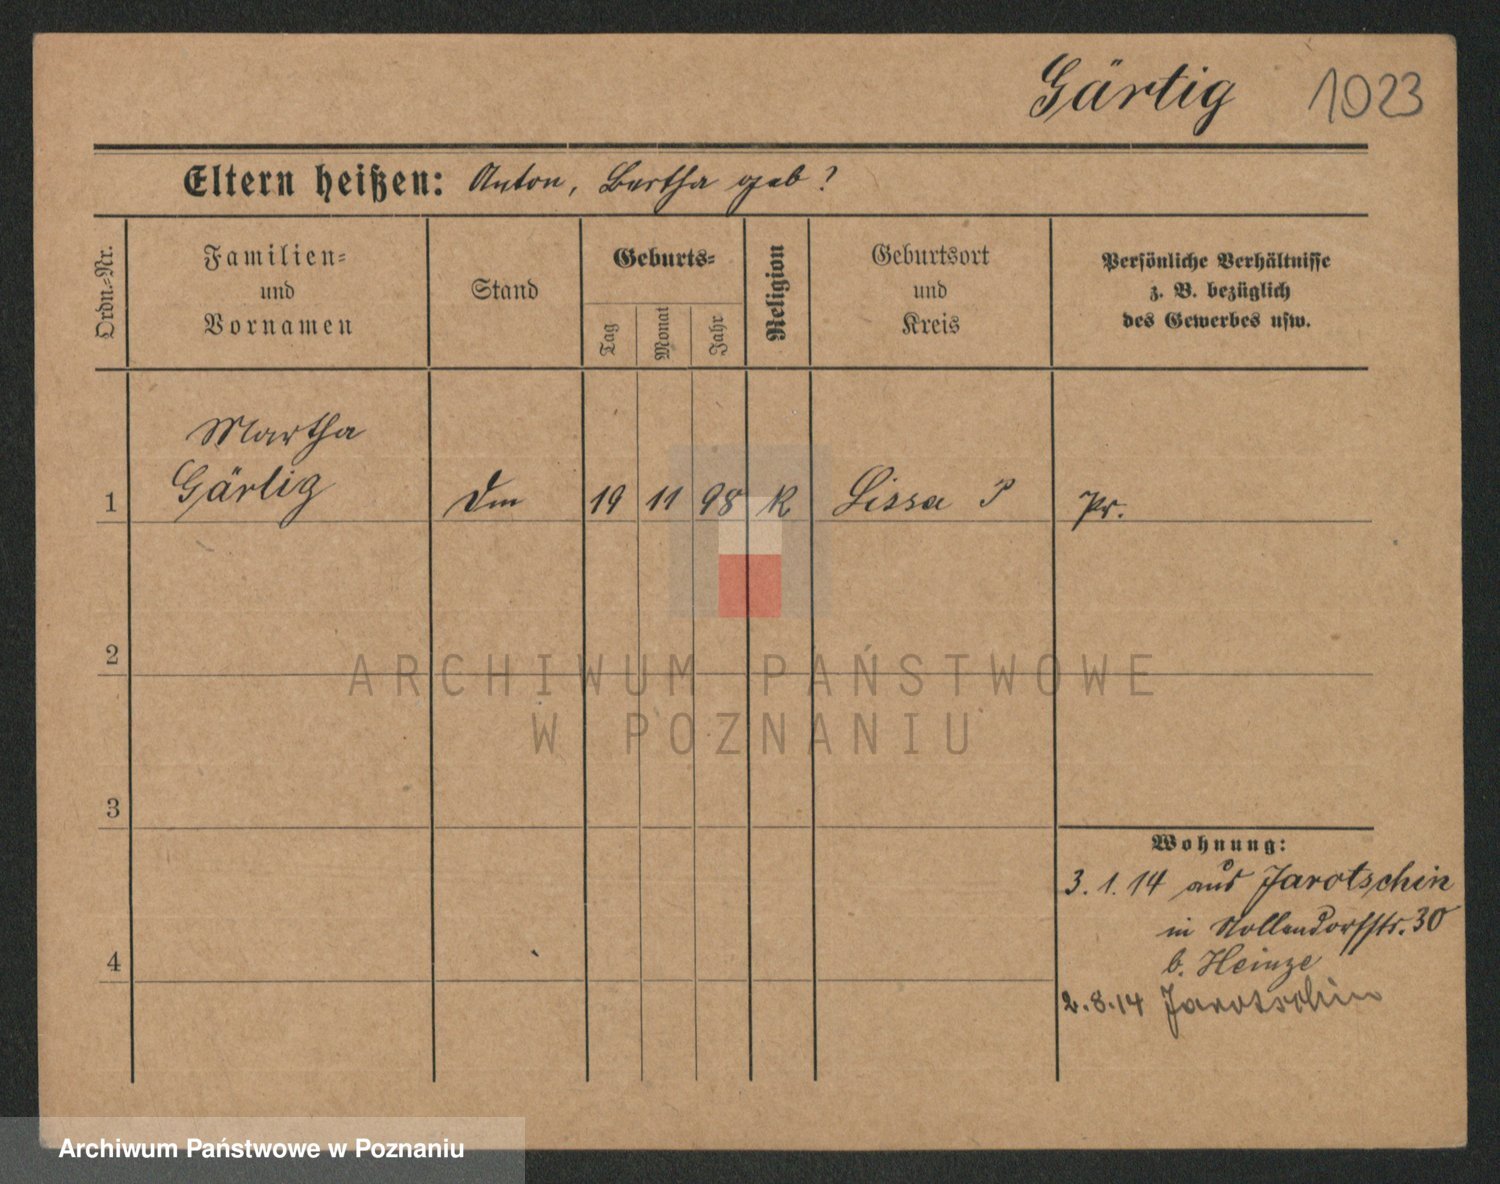 Gärtig 1023
Eltern heißen: Anton, Bertha geb?
Ordn.-Nr.
Familien-
und
Vornamen
Stand
Geburts-
Tag
Monat
Jahr
Religion
Geburtsort
und
Kreis
Persönliche Verhältnisse
z. B. bezüglich
des Gewerbes usw.
Martha
Gärtig
1 19 11 98 K Lissa P Pr.
2
3
4
Wohnung:
3.1.14 aus Jarotschin
in Nollendorfstr. 30
b. Heinze
2.8.14 Jarotschin
ARCHIWUM PAŃSTWOWE
W POZNANIU
Archiwum Państwowe w Poznaniu